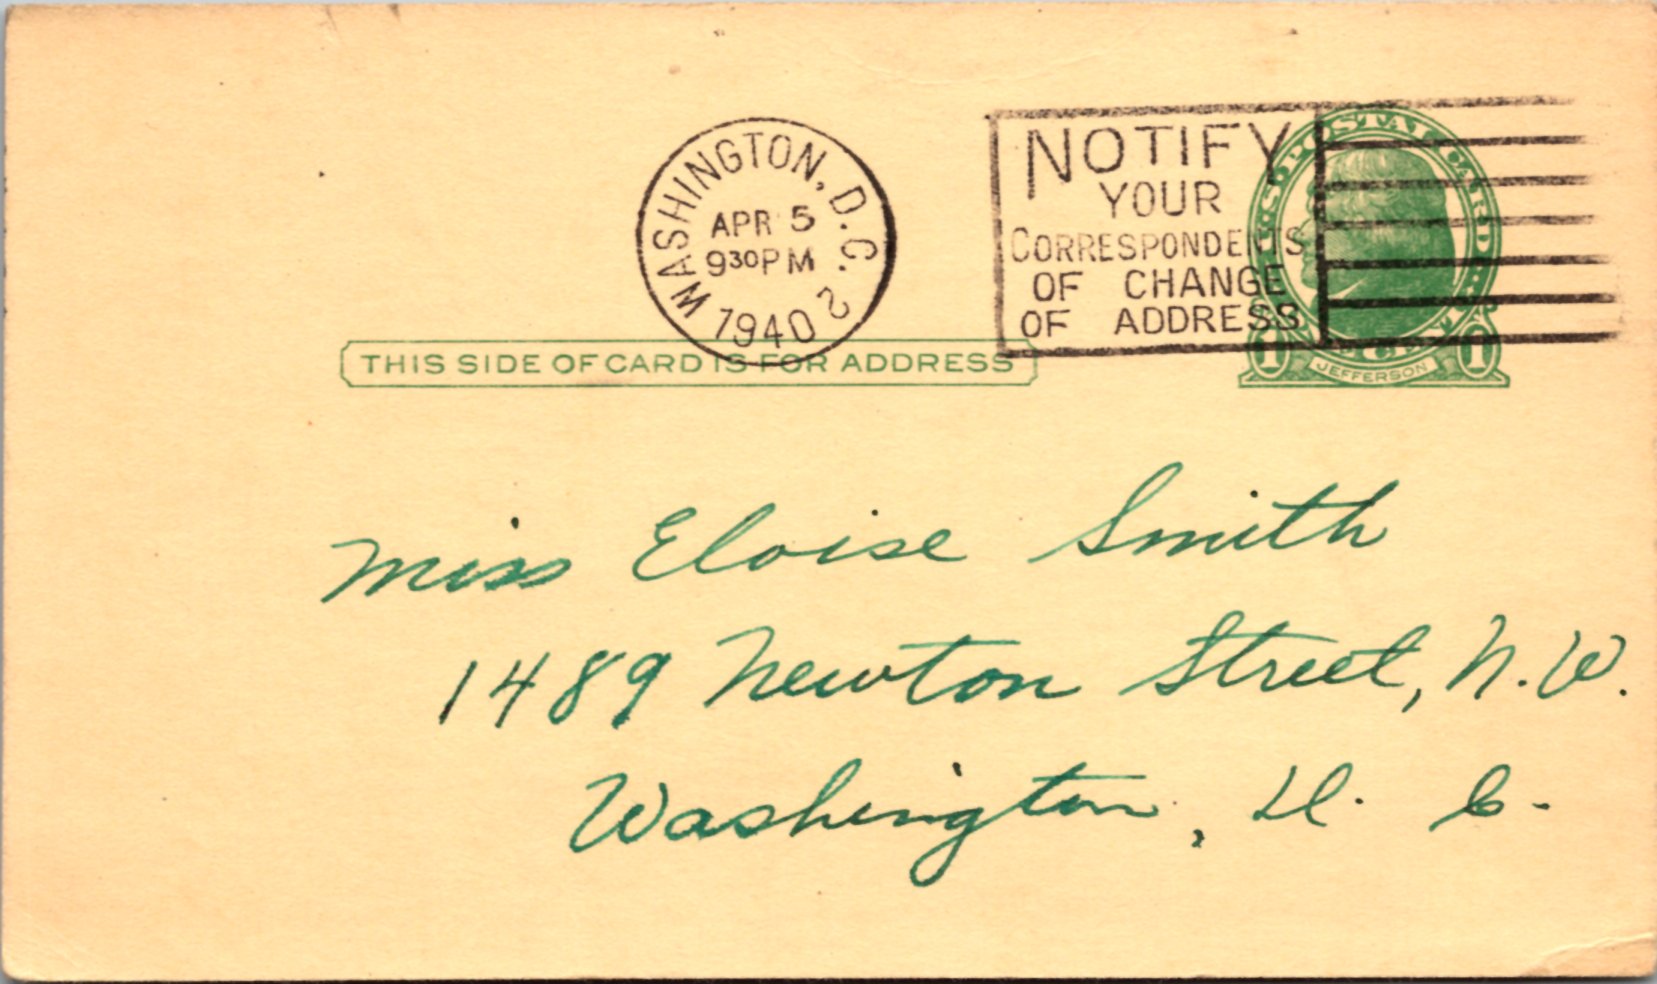 WASHINGTON, D.C. 2
APR 5
930PM
1940
NOTIFY
YOUR
CORRESPONDENTS
OF CHANGE
OF ADDRESS
U.S. POSTAL CARD
1 CENT 1
JEFFERSON
THIS SIDE OF CARD IS FOR ADDRESS
Miss Eloise Smith
1489 Newton Street, N.W.
Washington, D. C.